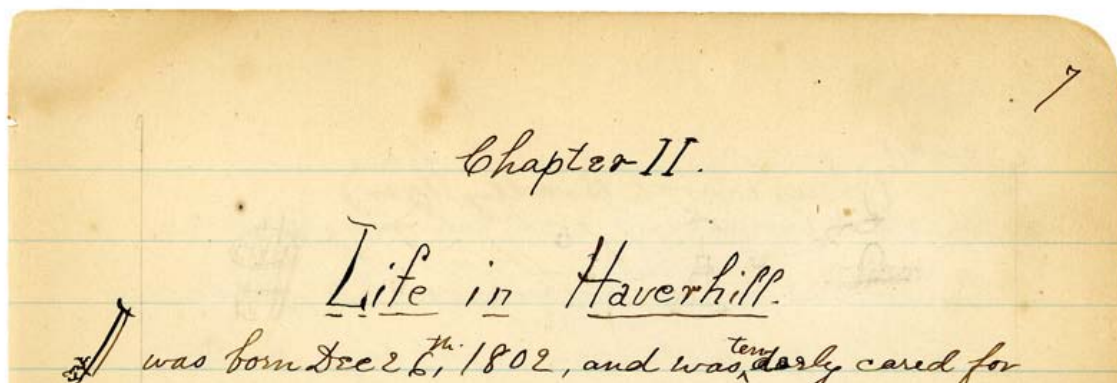 7
Chapter II.
Life in Haverhill.
I was born Dec 26th, 1802, and was tenderly cared for